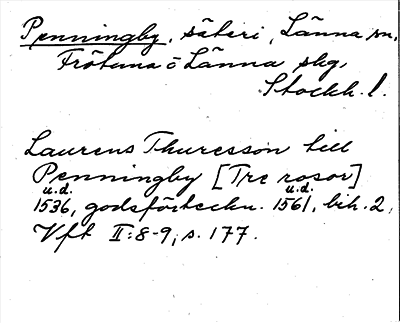 Penningby, säteri, Länna sn,
Frötuna o Länna skg,
Stockh. l.
Laurens Thuresson till
Penningby [Tre rosor]
u.d. u.d.
1536, godsförteckn. 1561, bih. 2,
Vft II:8-9, s. 177.